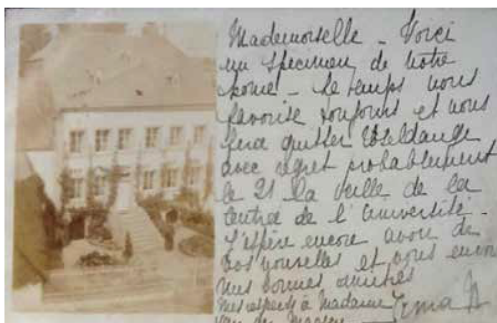 Mademoiselle - Voici
un specimen de notre
home - le temps nous
favorise toujours et nous
fera quitter Useldange
avec regret probablement
le 21 la veille de la
rentrée de l'université -
J'espère encore avoir de
vos nouvelles et vous envoie
mes bonnes amitiés
Mes respects à Madame Irma
van der